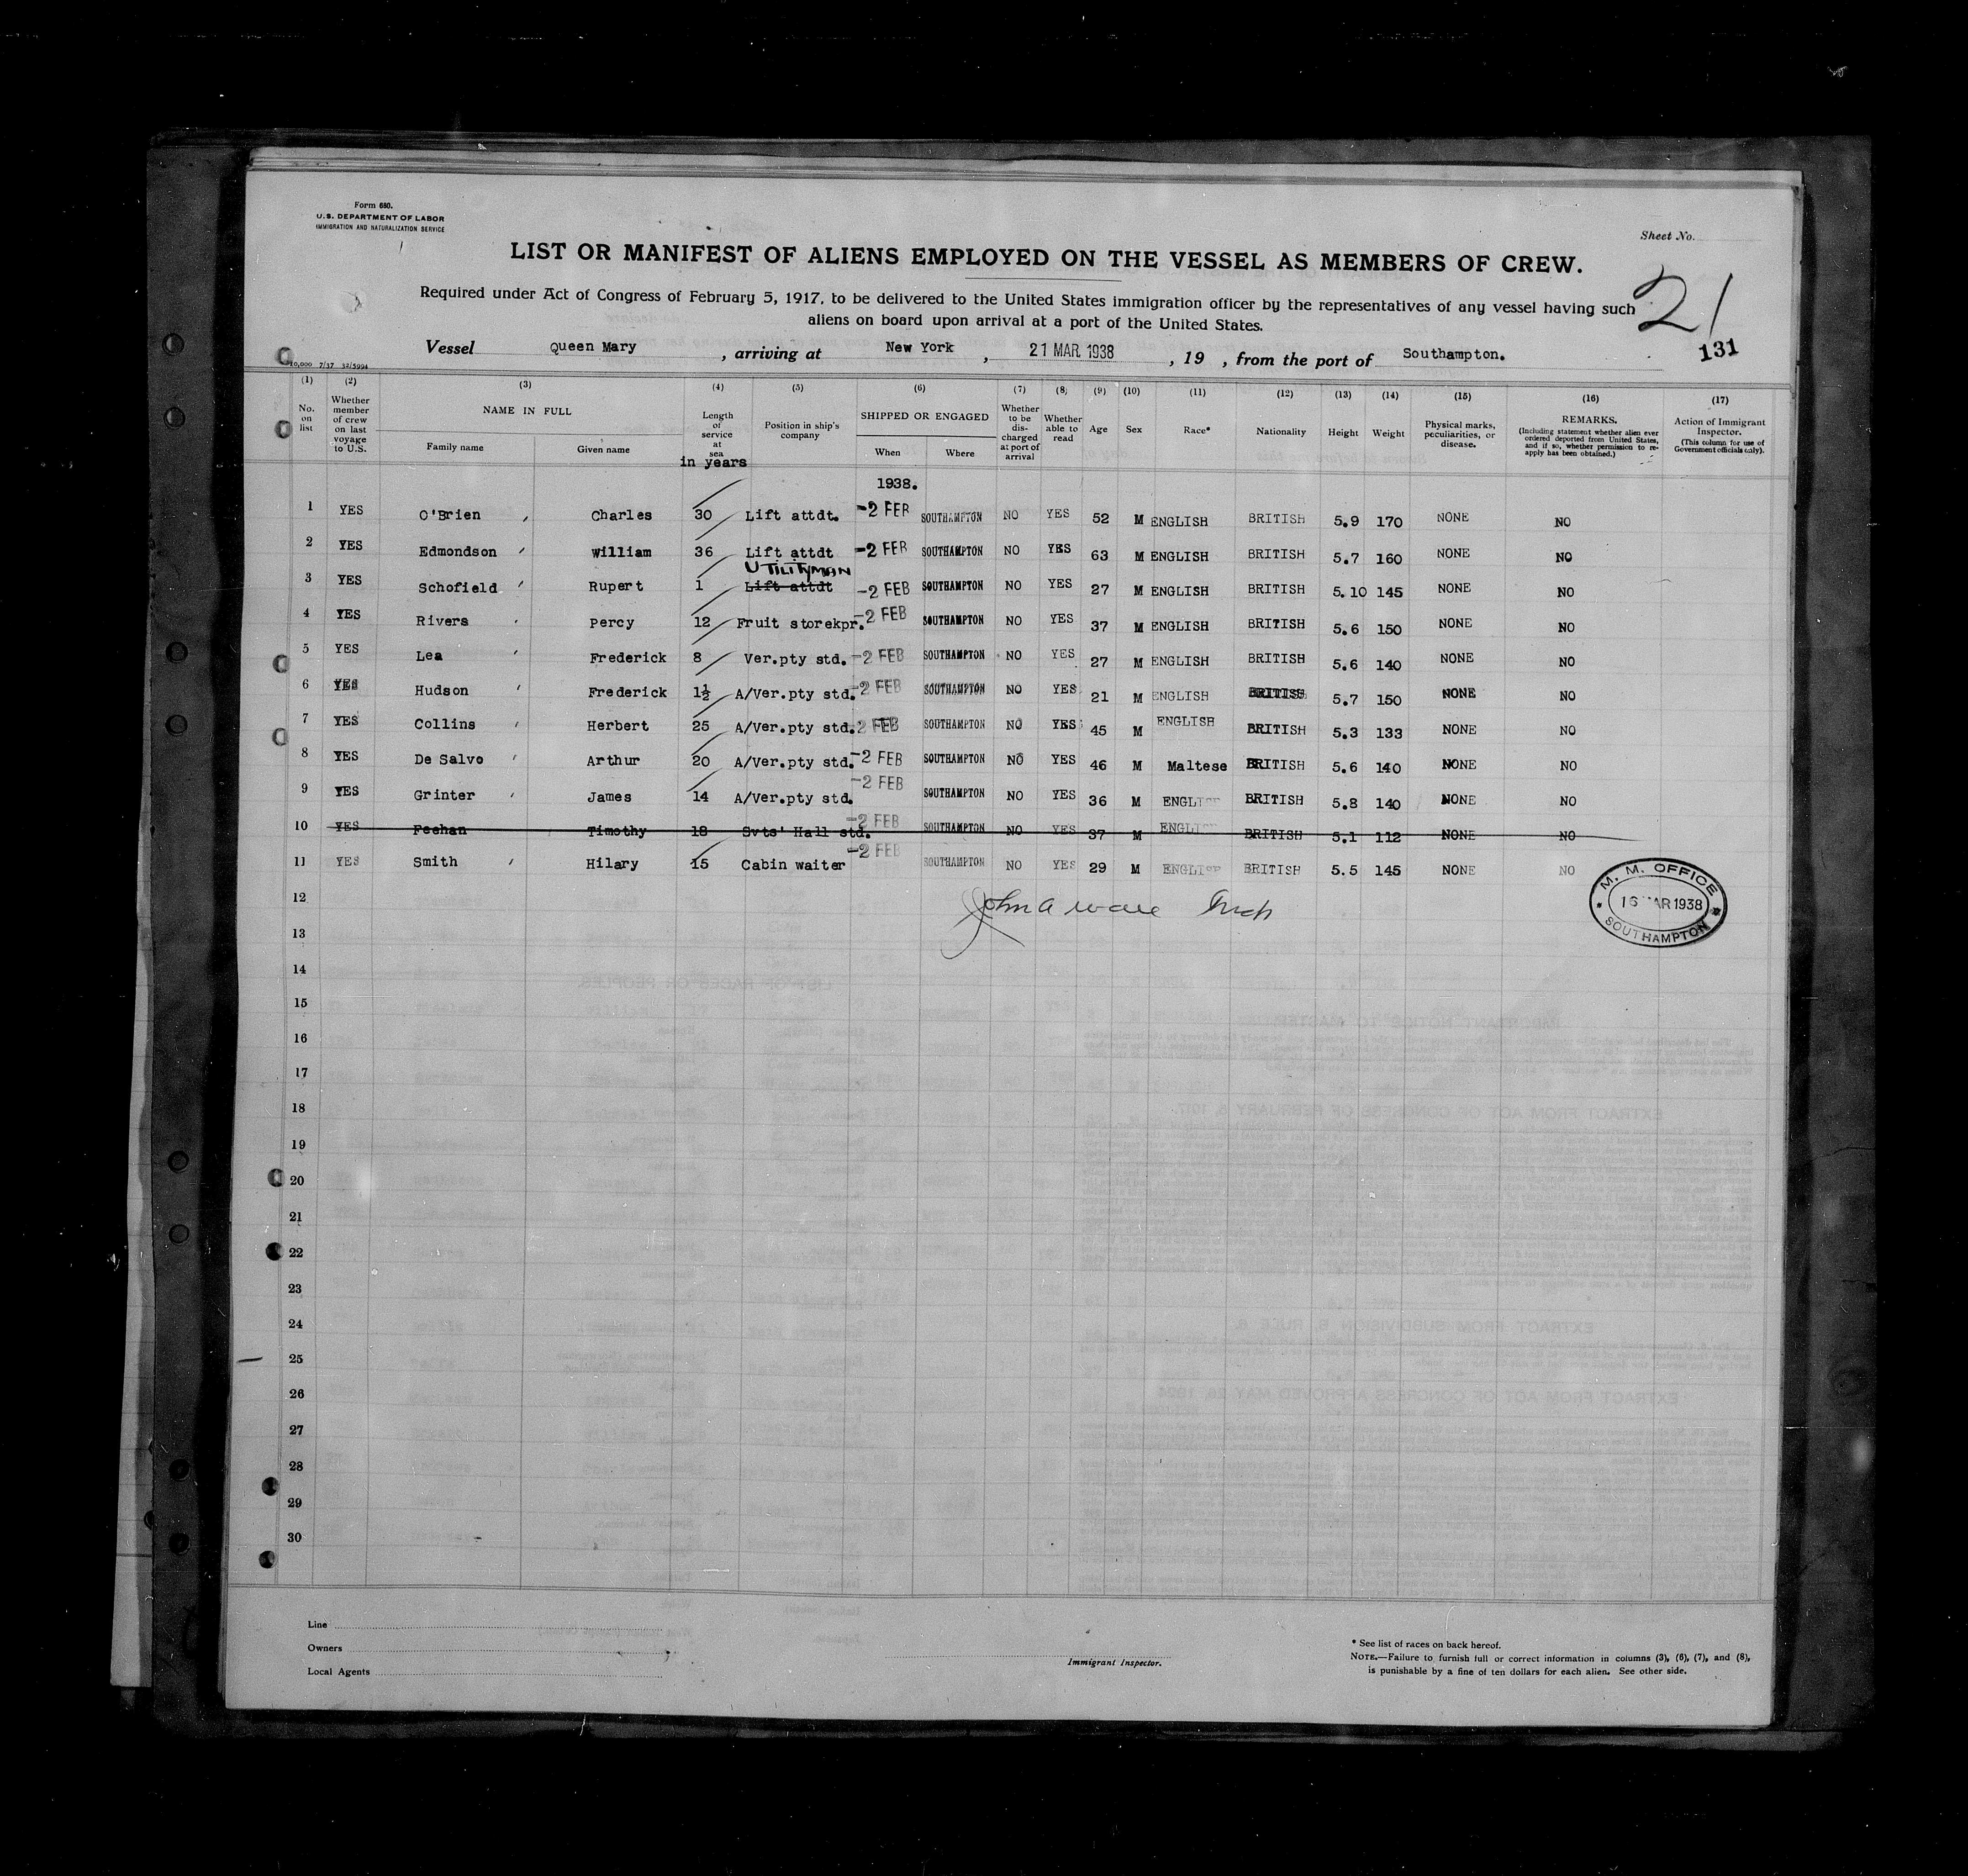 Form 680.
U.S. DEPARTMENT OF LABOR
IMMIGRATION AND NATURALIZATION SERVICE
Sheet No.
LIST OR MANIFEST OF ALIENS EMPLOYED ON THE VESSEL AS MEMBERS OF CREW.
Required under Act of Congress of February 5, 1917, to be delivered to the United States immigration officer by the representatives of any vessel having such
aliens on board upon arrival at a port of the United States.
21
131
Vessel Queen Mary, arriving at New York, 21 MAR 1938, 19 , from the port of Southampton.
10,000 7/37 32/5994
(1) (2) (3) (4) (5) (6) (7) (8) (9) (10) (11) (12) (13) (14) (15) (16) (17)
No. on list
Whether member of crew on last voyage to U.S.
NAME IN FULL
Family name
Given name
Length of service at sea
in years
Position in ship's company
SHIPPED OR ENGAGED
When
Where
Whether to be discharged at port of arrival
Whether able to read
Age
Sex
Race*
Nationality
Height
Weight
Physical marks, peculiarities, or disease.
REMARKS.
(Including statement whether alien ever ordered deported from United States, and if so, whether permission to re-apply has been obtained.)
Action of Immigrant Inspector.
(This column for use of Government officials only).
1938.
1 YES O'Brien , Charles 30 Lift attdt. -2 FEB SOUTHAMPTON NO YES 52 M ENGLISH BRITISH 5.9 170 NONE NO
2 YES Edmondson William 36 Lift attdt -2 FEB SOUTHAMPTON NO YES 63 M ENGLISH BRITISH 5.7 160 NONE NO
UTILITYMAN
3 YES Schofield Rupert 1 Lift attdt -2 FEB SOUTHAMPTON NO YES 27 M ENGLISH BRITISH 5.10 145 NONE NO
4 YES Rivers Percy 12 Fruit storekpr. -2 FEB SOUTHAMPTON NO YES 37 M ENGLISH BRITISH 5.6 150 NONE NO
5 YES Lea Frederick 8 Ver.pty std. -2 FEB SOUTHAMPTON NO YES 27 M ENGLISH BRITISH 5.6 140 NONE NO
6 YES Hudson Frederick 1½ A/Ver.pty std. -2 FEB SOUTHAMPTON NO YES 21 M ENGLISH BRITISH 5.7 150 NONE NO
7 YES Collins Herbert 25 A/Ver.pty std. 2 FEB SOUTHAMPTON NO YES 45 M ENGLISH BRITISH 5.3 133 NONE NO
8 YES De Salvo Arthur 20 A/Ver.pty std. -2 FEB SOUTHAMPTON NO YES 46 M Maltese BRITISH 5.6 140 NONE NO
9 YES Grinter James 14 A/Ver.pty std. -2 FEB SOUTHAMPTON NO YES 36 M ENGLISH BRITISH 5.8 140 NONE NO
10 YES Feehan Timothy 18 Svts' Hall std. -2 FEB SOUTHAMPTON NO YES 37 M ENGLISH BRITISH 5.1 112 NONE NO
11 YES Smith Hilary 15 Cabin waiter -2 FEB SOUTHAMPTON NO YES 29 M ENGLISH BRITISH 5.5 145 NONE NO
M. M. OFFICE
16 MAR 1938
SOUTHAMPTON
12
John A
13
14
15
16
17
18
19
20
21
22
23
24
25
26
27
28
29
30
Line
Owners
Local Agents
Immigrant Inspector.
* See list of races on back hereof.
NOTE.—Failure to furnish full or correct information in columns (3), (6), (7), and (8),
is punishable by a fine of ten dollars for each alien. See other side.